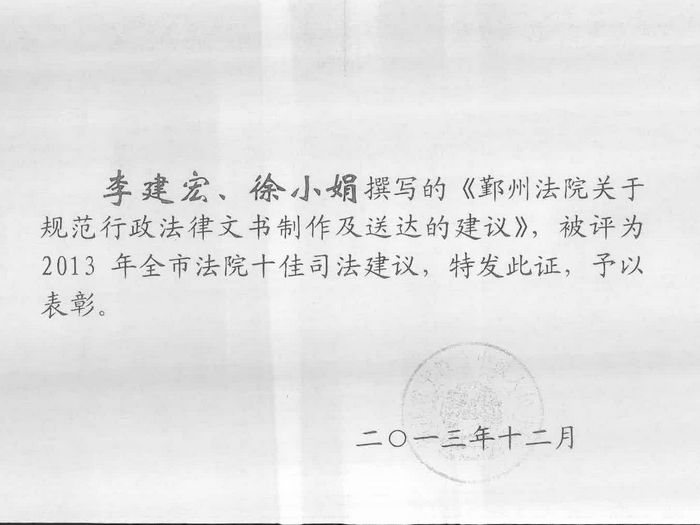 李建宏、徐小娟撰写的《鄞州法院关于
规范行政法律文书制作及送达的建议》，被评为
2013 年全市法院十佳司法建议，特发此证，予以
表彰。
二〇一三年十二月